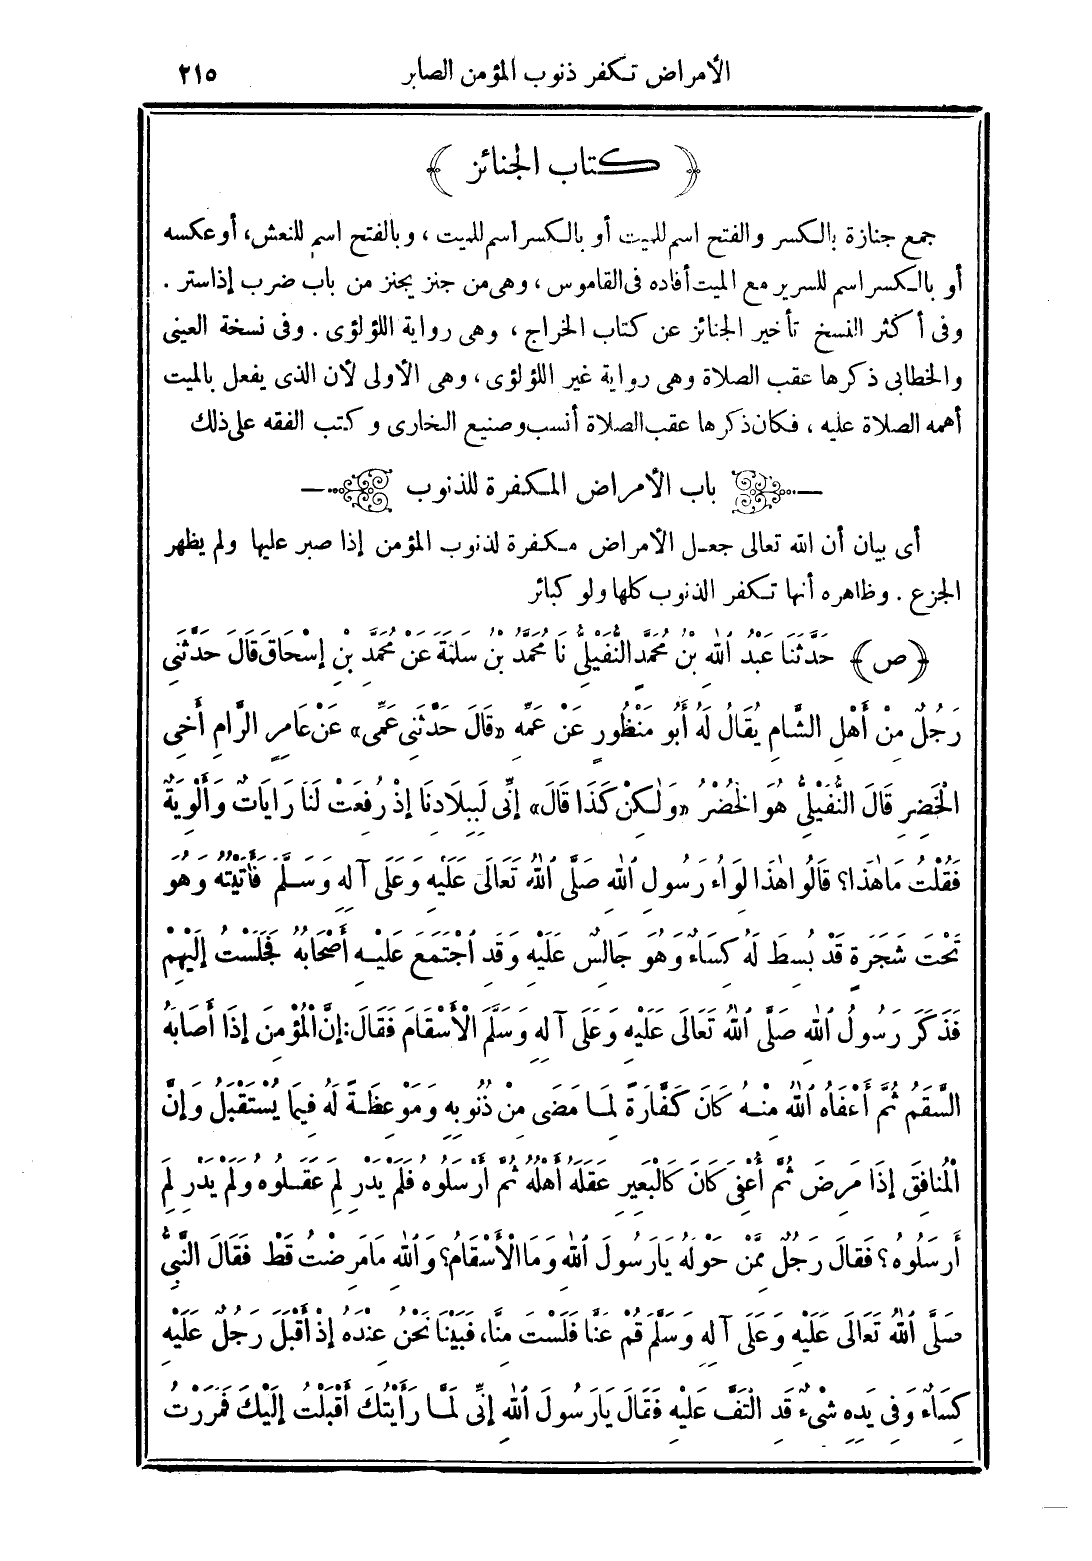 الأمراض تكفر ذنوب المؤمن الصابر ٢١٥
﴿ كتاب الجنائز ﴾
جمع جنازة بالكسر والفتح اسم للميت أو بالكسر اسم للميت ، وبالفتح اسم للنعش، أو عكسه
أو بالكسر اسم للسرير مع الميت أفاده فى القاموس ، وهى من جنز يجنز من باب ضرب إذا ستر .
وفى أكثر النسخ تأخير الجنائز عن كتاب الخراج ، وهى رواية اللؤلؤى . وفى نسخة العينى
والخطابى ذكرها عقب الصلاة وهى رواية غير اللؤلؤى ، وهى الأولى لأن الذى يفعل بالميت
أهمه الصلاة عليه ، فكان ذكرها عقب الصلاة أنسب وصنيع البخارى وكتب الفقه على ذلك
باب الأمراض المكفرة للذنوب
أى بيان أن الله تعالى جعل الأمراض مكفرة لذنوب المؤمن إذا صبر عليها ولم يظهر
الجزع . وظاهره أنها تكفر الذنوب كلها ولو كبائر
﴿ ص ﴾ حَدَّثَنَا عَبْدُ ٱللهِ بْنُ مُحَمَّدٍ النُّفَيْلِىُّ نَا مُحَمَّدُ بْنُ سَلَمَةَ عَنْ مُحَمَّدِ بْنِ إِسْحَاقَ قَالَ حَدَّثَنِى
رَجُلٌ مِنْ أَهْلِ الشَّامِ يُقَالُ لَهُ أَبُو مَنْظُورٍ عَنْ عَمِّهِ «قَالَ حَدَّثَنِى عَمِّى» عَنْ عَامِرٍ الرَّامِ أَخِى
الْخُضِرِ قَالَ النُّفَيْلِىُّ هُوَ الْخُضْرُ «وَلَٰكِنْ كَذَا قَالَ» إِنِّى لَبِبِلَادِنَا إِذْ رُفِعَتْ لَنَا رَايَاتٌ وَأَلْوِيَةٌ
فَقُلْتُ مَا هَٰذَا؟ قَالُوا هَٰذَا لِوَاءُ رَسُولِ ٱللهِ صَلَّى ٱللهُ تَعَالَى عَلَيْهِ وَعَلَى آلِهِ وَسَلَّمَ فَأَتَيْتُهُ وَهُوَ
تَحْتَ شَجَرَةٍ قَدْ بُسِطَ لَهُ كِسَاءٌ وَهُوَ جَالِسٌ عَلَيْهِ وَقَدِ ٱجْتَمَعَ عَلَيْهِ أَصْحَابُهُ فَجَلَسْتُ إِلَيْهِمْ
فَذَكَرَ رَسُولُ ٱللهِ صَلَّى ٱللهُ تَعَالَى عَلَيْهِ وَعَلَى آلِهِ وَسَلَّمَ الْأَسْقَامَ فَقَالَ: إِنَّ الْمُؤْمِنَ إِذَا أَصَابَهُ
السَّقَمُ ثُمَّ أَعْفَاهُ ٱللهُ مِنْهُ كَانَ كَفَّارَةً لِمَا مَضَى مِنْ ذُنُوبِهِ وَمَوْعِظَةً لَهُ فِيمَا يُسْتَقْبَلُ وَإِنَّ
الْمُنَافِقَ إِذَا مَرِضَ ثُمَّ أُعْفِىَ كَانَ كَالْبَعِيرِ عَقَلَهُ أَهْلُهُ ثُمَّ أَرْسَلُوهُ فَلَمْ يَدْرِ لِمَ عَقَلُوهُ وَلَمْ يَدْرِ لِمَ
أَرْسَلُوهُ؟ فَقَالَ رَجُلٌ مِمَّنْ حَوْلَهُ يَارَسُولَ ٱللهِ وَمَا الْأَسْقَامُ؟ وَٱللهِ مَا مَرِضْتُ قَطُّ فَقَالَ النَّبِىُّ
صَلَّى ٱللهُ تَعَالَى عَلَيْهِ وَعَلَى آلِهِ وَسَلَّمَ قُمْ عَنَّا فَلَسْتَ مِنَّا، فَبَيْنَا نَحْنُ عِنْدَهُ إِذْ أَقْبَلَ رَجُلٌ عَلَيْهِ
كِسَاءٌ وَفِى يَدِهِ شَىْءٌ قَدِ الْتَفَّ عَلَيْهِ فَقَالَ يَارَسُولَ ٱللهِ إِنِّى لَمَّا رَأَيْتُكَ أَقْبَلْتُ إِلَيْكَ فَمَرَرْتُ